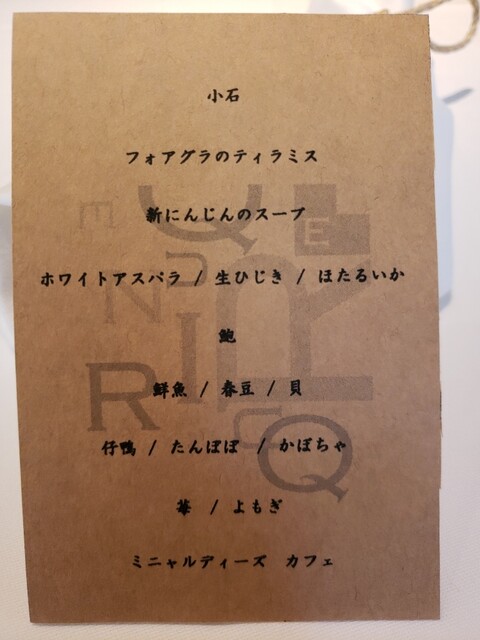 小石
フォアグラのティラミス
新にんじんのスープ
ホワイトアスパラ / 生ひじき / ほたるいか
鮑
鮮魚 / 春豆 / 貝
仔鴨 / たんぽぽ / かぼちゃ
華 / よもぎ
ミニャルディーズ カフェ